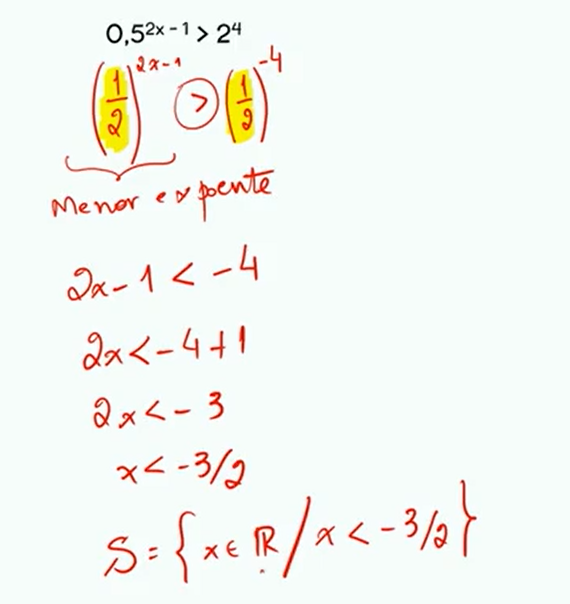 0,5²ˣ ⁻ ¹ > 2⁴
(1/2)²ˣ⁻¹ > (1/2)⁻⁴
Menor expoente
2x - 1 < -4
2x < -4 + 1
2x < -3
x < -3/2
S = {x ∈ ℝ / x < -3/2}